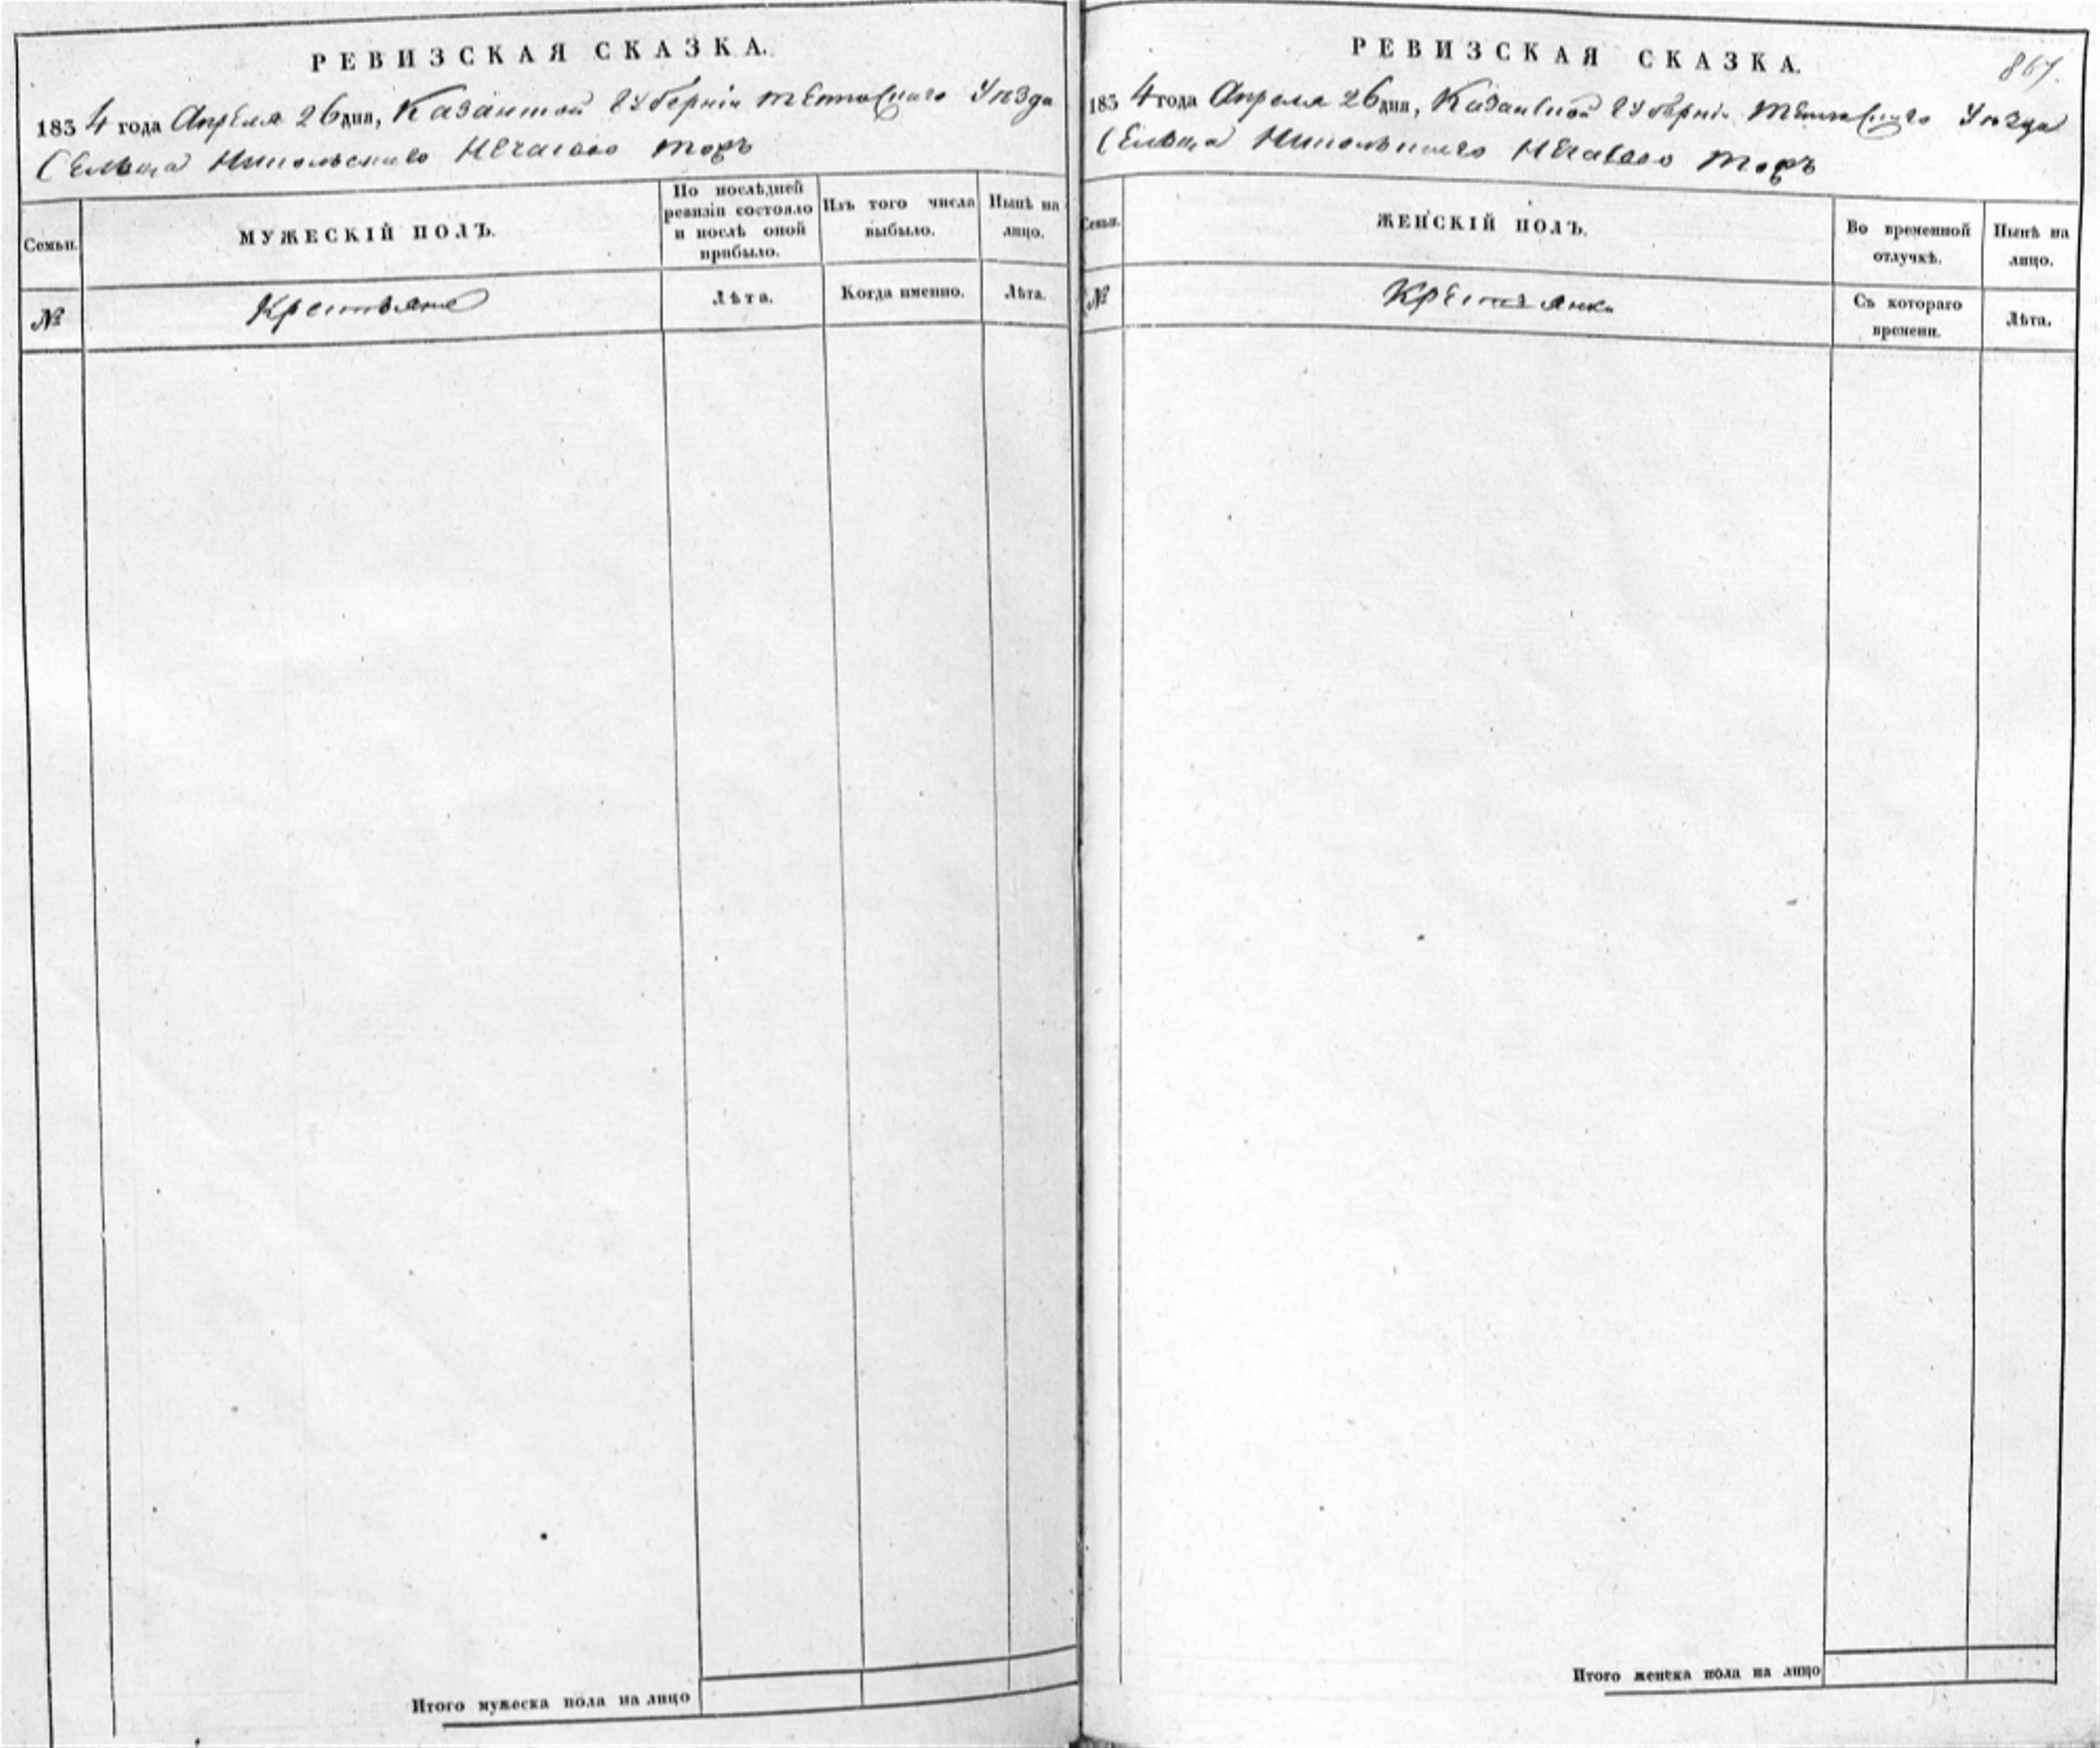 РЕВИЗСКАЯ СКАЗКА.
1834 года Апреля 26 дня, Казанской Губерніи Тетюшскаго Уѣзда
Сельца Никольскаго Нечасово тожъ
Семьи.
МУЖЕСКІЙ ПОЛЪ.
По послѣдней
ревизіи состояло
и послѣ оной
прибыло.
Изъ того числа
выбыло.
Нынѣ на
лицо.
№
Крестьяне
Лѣта.
Когда именно.
Лѣта.
Итого мужеска пола на лицо
РЕВИЗСКАЯ СКАЗКА.
867.
1834 года Апреля 26 дня, Казанской Губерніи Тетюшскаго Уѣзда
Сельца Никольскаго Нечасово тожъ
Семьи.
ЖЕНСКІЙ ПОЛЪ.
Во временной
отлучкѣ.
Нынѣ на
лицо.
№
Крестьянки
Съ котораго
времени.
Лѣта.
Итого женска пола на лицо